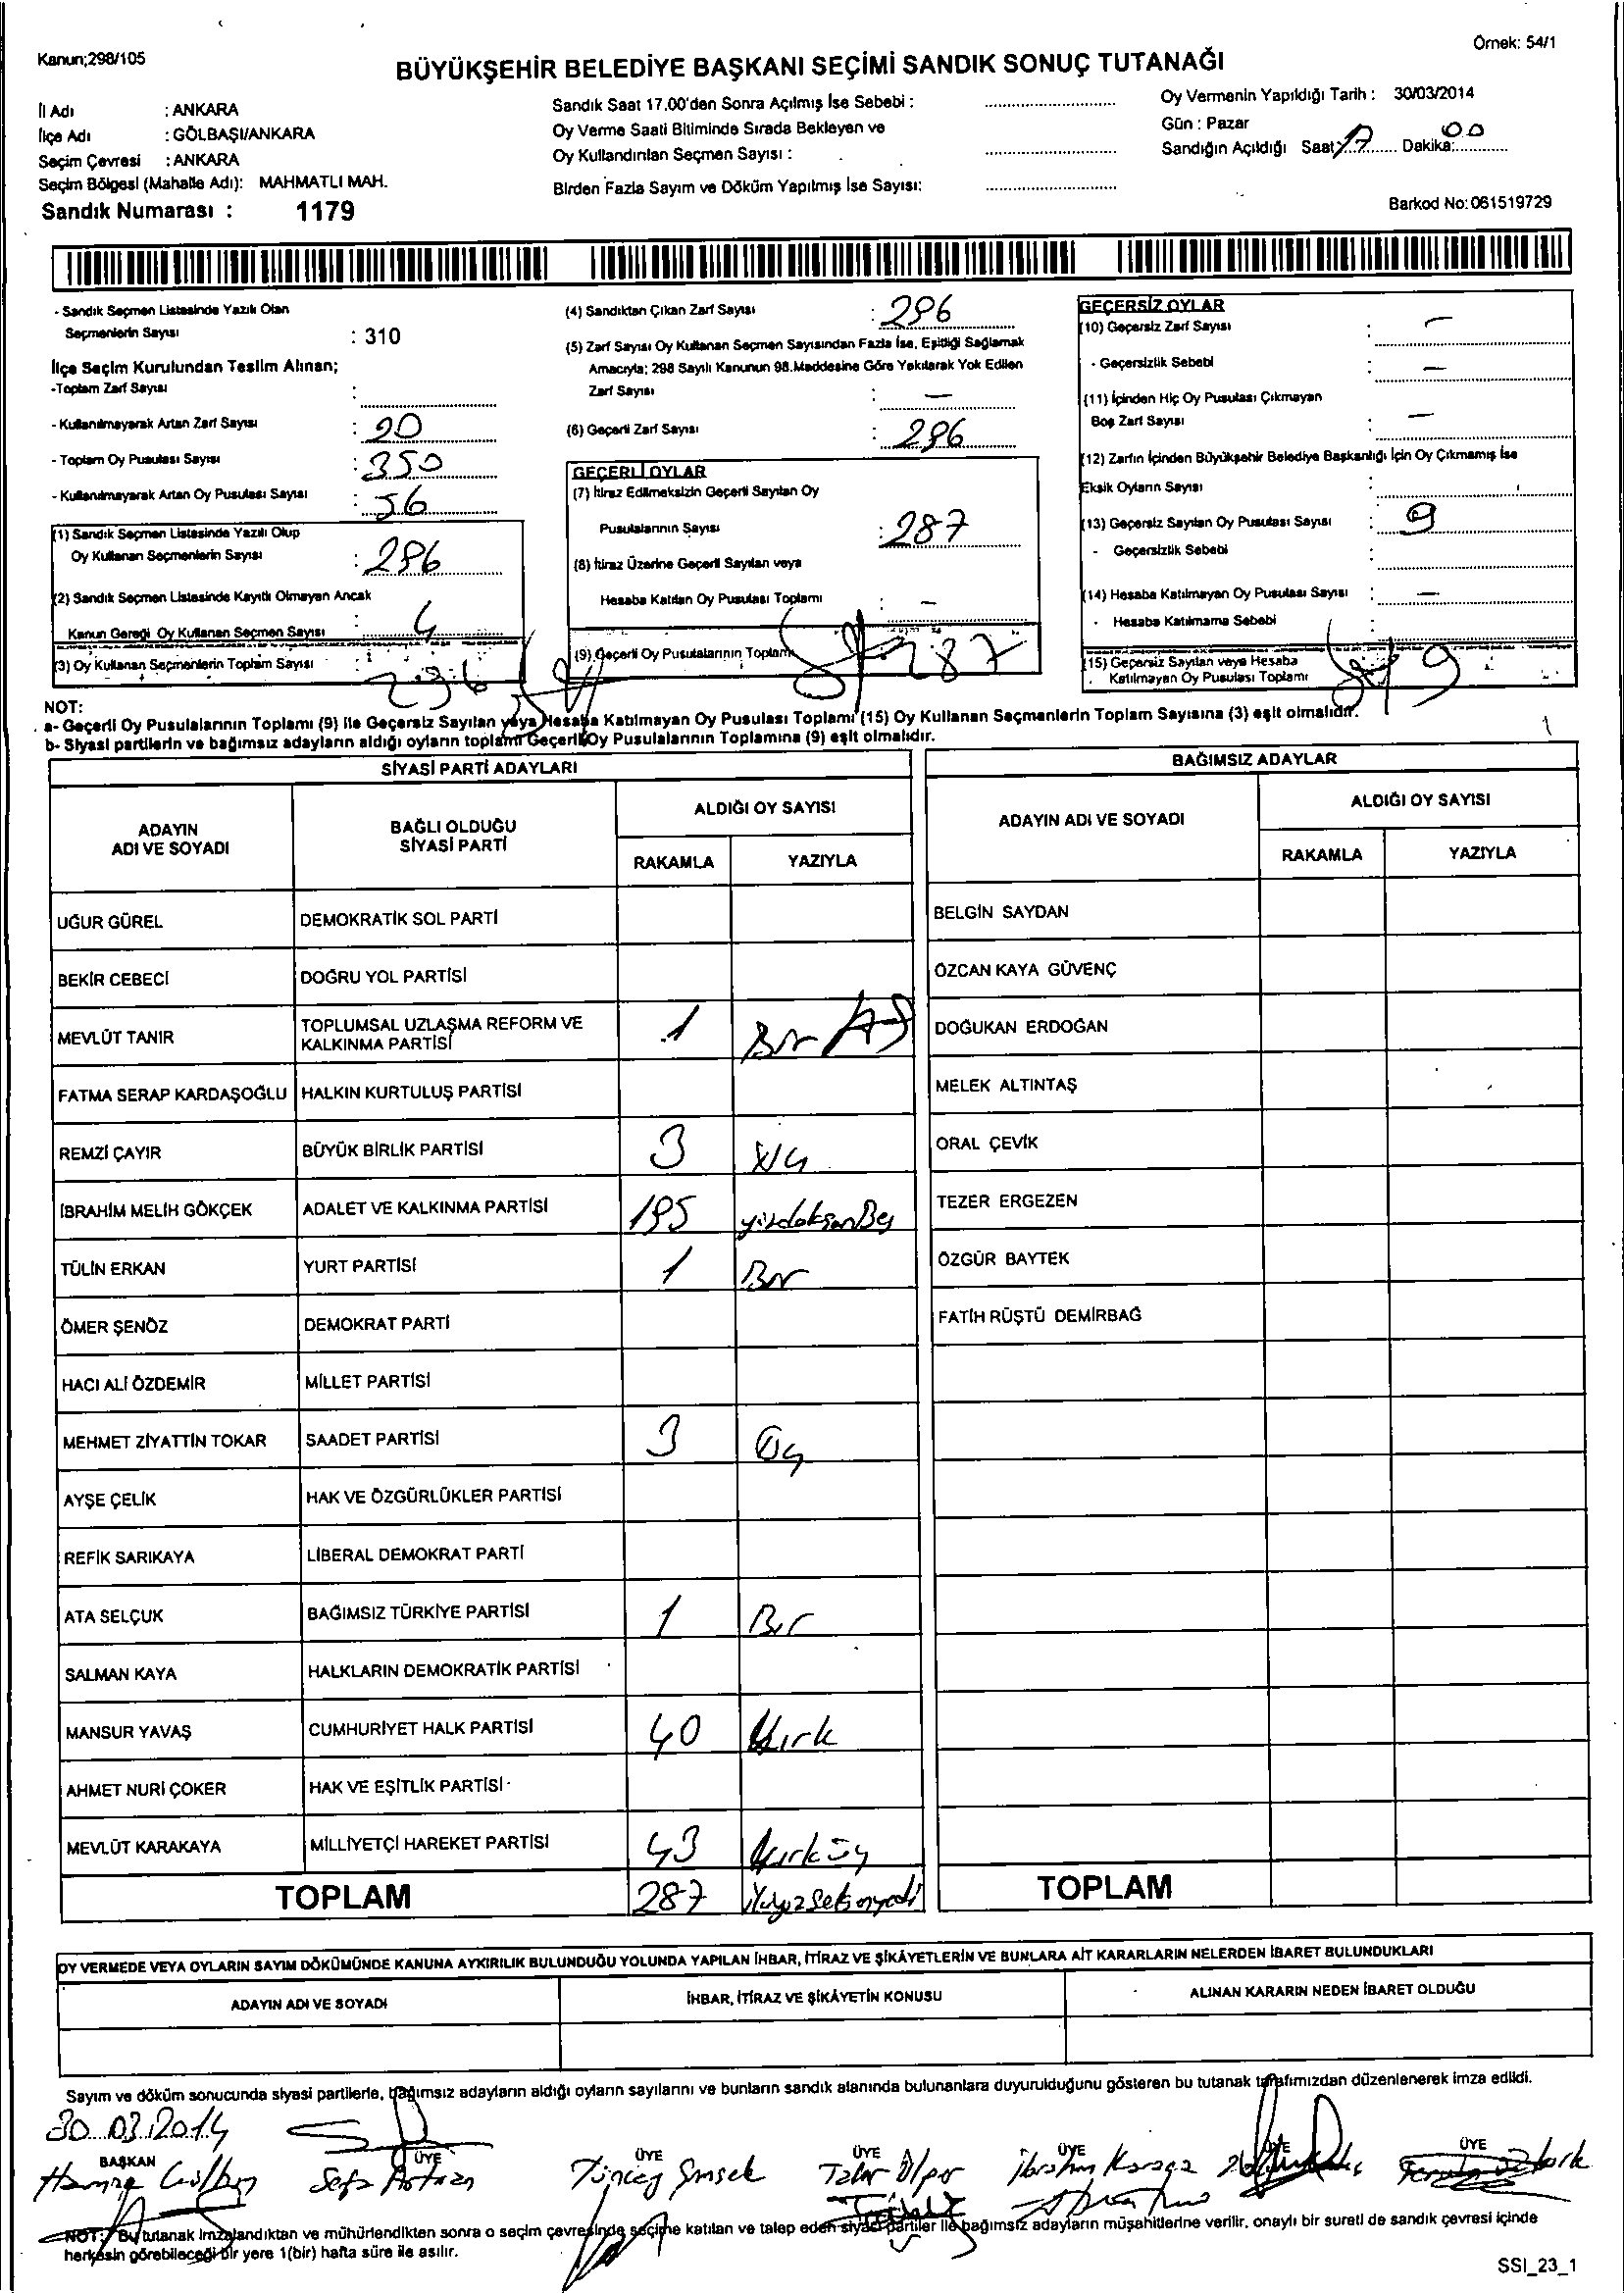 Kanun;298/105
Örnek: 54/1
BÜYÜKŞEHİR BELEDİYE BAŞKANI SEÇİMİ SANDIK SONUÇ TUTANAĞI
İl Adı : ANKARA
İlçe Adı : GÖLBAŞI/ANKARA
Seçim Çevresi : ANKARA
Seçim Bölgesi (Mahalle Adı): MAHMATLI MAH.
Sandık Numarası : 1179
Sandık Saat 17.00'den Sonra Açılmış İse Sebebi :
Oy Verme Saati Bitiminde Sırada Bekleyen ve
Oy Kullandırılan Seçmen Sayısı :
Birden Fazla Sayım ve Döküm Yapılmış İse Sayısı:
Oy Vermenin Yapıldığı Tarih : 30/03/2014
Gün : Pazar
Sandığın Açıldığı Saat: 17 Dakika: 00
Barkod No: 061519729
- Sandık Seçmen Listesinde Yazılı Olan
Seçmenlerin Sayısı : 310
İlçe Seçim Kurulundan Teslim Alınan;
-Toplam Zarf Sayısı :
- Kullanılmayarak Artan Zarf Sayısı : 20
- Toplam Oy Pusulası Sayısı : 350
- Kullanılmayarak Artan Oy Pusulası Sayısı : 56
(1) Sandık Seçmen Listesinde Yazılı Olup
Oy Kullanan Seçmenlerin Sayısı : 296
(2) Sandık Seçmen Listesinde Kayıtlı Olmayan Ancak
Kanun Gereği Oy Kullanan Seçmen Sayısı : 4
(3) Oy Kullanan Seçmenlerin Toplam Sayısı : 296
(4) Sandıktan Çıkan Zarf Sayısı : 296
(5) Zarf Sayısı Oy Kullanan Seçmen Sayısından Fazla İse, Eşitliği Sağlamak
Amacıyla; 298 Sayılı Kanunun 98.Maddesine Göre Yakılarak Yok Edilen
Zarf Sayısı : —
(6) Geçerli Zarf Sayısı : 296
GEÇERLİ OYLAR
(7) İtiraz Edilmeksizin Geçerli Sayılan Oy
Pusulalarının Sayısı : 287
(8) İtiraz Üzerine Geçerli Sayılan veya
Hesaba Katılan Oy Pusulası Toplamı : —
(9) Geçerli Oy Pusulalarının Toplamı 287
GEÇERSİZ OYLAR
(10) Geçersiz Zarf Sayısı : —
- Geçersizlik Sebebi : —
(11) İçinden Hiç Oy Pusulası Çıkmayan
Boş Zarf Sayısı : —
(12) Zarfın İçinden Büyükşehir Belediye Başkanlığı İçin Oy Çıkmamış İse
Eksik Oyların Sayısı :
(13) Geçersiz Sayılan Oy Pusulası Sayısı : 9
- Geçersizlik Sebebi :
(14) Hesaba Katılmayan Oy Pusulası Sayısı : —
- Hesaba Katılmama Sebebi :
(15) Geçersiz Sayılan veya Hesaba
Katılmayan Oy Pusulası Toplamı 9
NOT:
a- Geçerli Oy Pusulalarının Toplamı (9) ile Geçersiz Sayılan veya Hesaba Katılmayan Oy Pusulası Toplamı (15) Oy Kullanan Seçmenlerin Toplam Sayısına (3) eşit olmalıdır.
b- Siyasi partilerin ve bağımsız adayların aldığı oyların toplamı Geçerli Oy Pusulalarının Toplamına (9) eşit olmalıdır.
SİYASİ PARTİ ADAYLARI
ADAYIN ADI VE SOYADI
BAĞLI OLDUĞU SİYASİ PARTİ
ALDIĞI OY SAYISI
RAKAMLA YAZIYLA
UĞUR GÜREL DEMOKRATİK SOL PARTİ
BEKİR CEBECİ DOĞRU YOL PARTİSİ
MEVLÜT TANIR TOPLUMSAL UZLAŞMA REFORM VE KALKINMA PARTİSİ 1 Bir
FATMA SERAP KARDAŞOĞLU HALKIN KURTULUŞ PARTİSİ
REMZİ ÇAYIR BÜYÜK BİRLİK PARTİSİ 3 Üç
İBRAHİM MELİH GÖKÇEK ADALET VE KALKINMA PARTİSİ 195 yüzdoksanBeş
TÜLİN ERKAN YURT PARTİSİ 1 Bir
ÖMER ŞENÖZ DEMOKRAT PARTİ
HACI ALİ ÖZDEMİR MİLLET PARTİSİ
MEHMET ZİYATTİN TOKAR SAADET PARTİSİ 3 Üç
AYŞE ÇELİK HAK VE ÖZGÜRLÜKLER PARTİSİ
REFİK SARIKAYA LİBERAL DEMOKRAT PARTİ
ATA SELÇUK BAĞIMSIZ TÜRKİYE PARTİSİ 1 Bir
SALMAN KAYA HALKLARIN DEMOKRATİK PARTİSİ
MANSUR YAVAŞ CUMHURİYET HALK PARTİSİ 40 Kırk
AHMET NURİ ÇOKER HAK VE EŞİTLİK PARTİSİ
MEVLÜT KARAKAYA MİLLİYETÇİ HAREKET PARTİSİ 43 Kırküç
TOPLAM 287 ikiyüzseksenyedi
BAĞIMSIZ ADAYLAR
ADAYIN ADI VE SOYADI
ALDIĞI OY SAYISI
RAKAMLA YAZIYLA
BELGİN SAYDAN
ÖZCAN KAYA GÜVENÇ
DOĞUKAN ERDOĞAN
MELEK ALTINTAŞ
ORAL ÇEVİK
TEZER ERGEZEN
ÖZGÜR BAYTEK
FATİH RÜŞTÜ DEMİRBAĞ
TOPLAM
OY VERMEDE VEYA OYLARIN SAYIM DÖKÜMÜNDE KANUNA AYKIRILIK BULUNDUĞU YOLUNDA YAPILAN İHBAR, İTİRAZ VE ŞİKÂYETLERİN VE BUNLARA AİT KARARLARIN NELERDEN İBARET BULUNDUKLARI
ADAYIN ADI VE SOYADI
İHBAR, İTİRAZ VE ŞİKÂYETİN KONUSU
ALINAN KARARIN NEDEN İBARET OLDUĞU
Sayım ve döküm sonucunda siyasi partilerle, bağımsız adayların aldığı oyların sayılarını ve bunların sandık alanında bulunanlara duyurulduğunu gösteren bu tutanak tarafımızdan düzenlenerek imza edildi.
30.03.2014
BAŞKAN ÜYE ÜYE ÜYE ÜYE ÜYE ÜYE
Sefa Tüncay Şimşek İbrahim
NOT: Bu tutanak imzalandıktan ve mühürlendikten sonra o seçim çevresinde seçime katılan ve talep eden siyasi partiler ile bağımsız adayların müşahitlerine verilir, onaylı bir sureti de sandık çevresi içinde
herkesin görebileceği bir yere 1(bir) hafta süre ile asılır.
SSI_23_1